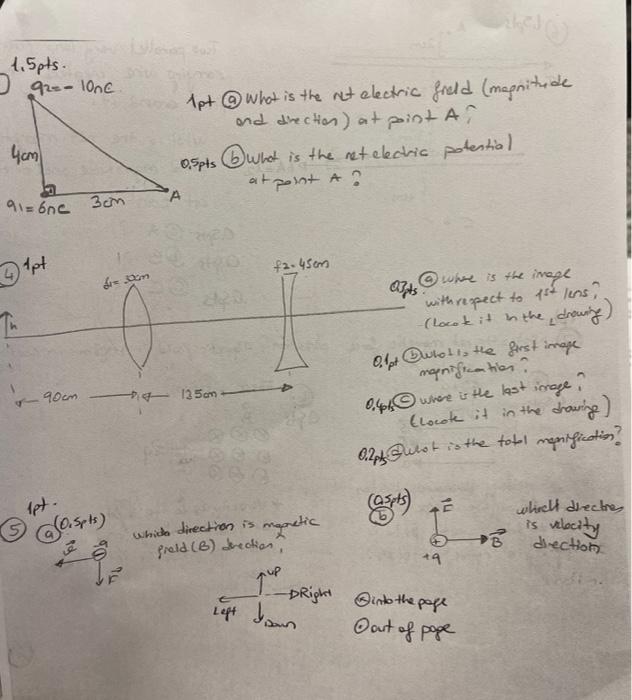 1.5pts.
q2=-10nC
4cm
q1=6nC 3cm A
1pt ⓐ What is the net electric field (magnitude
and direction) at point A?
0,5pts ⓑ What is the net electric potential
at point A?
④ 1pt
f1=30cm
f2=45cm
h
90cm
135cm
ⓐ where is the image
with respect to 1st lens?
(Locate it in the drawing)
0,1pt ⓑ what is the first image
magnification?
0,4pts ⓒ where is the last image?
(Locate it in the drawing)
0,2pts ⓓ what is the total magnification?
1pt.
⑤ ⓐ (0.5pts)
-q
F
which direction is magnetic
field (B) direction?
UP
Right
Left
Down
(0.5pts)
ⓑ
F
B
+q
which direction
is velocity
direction
⊗ into the page
⊙ out of page